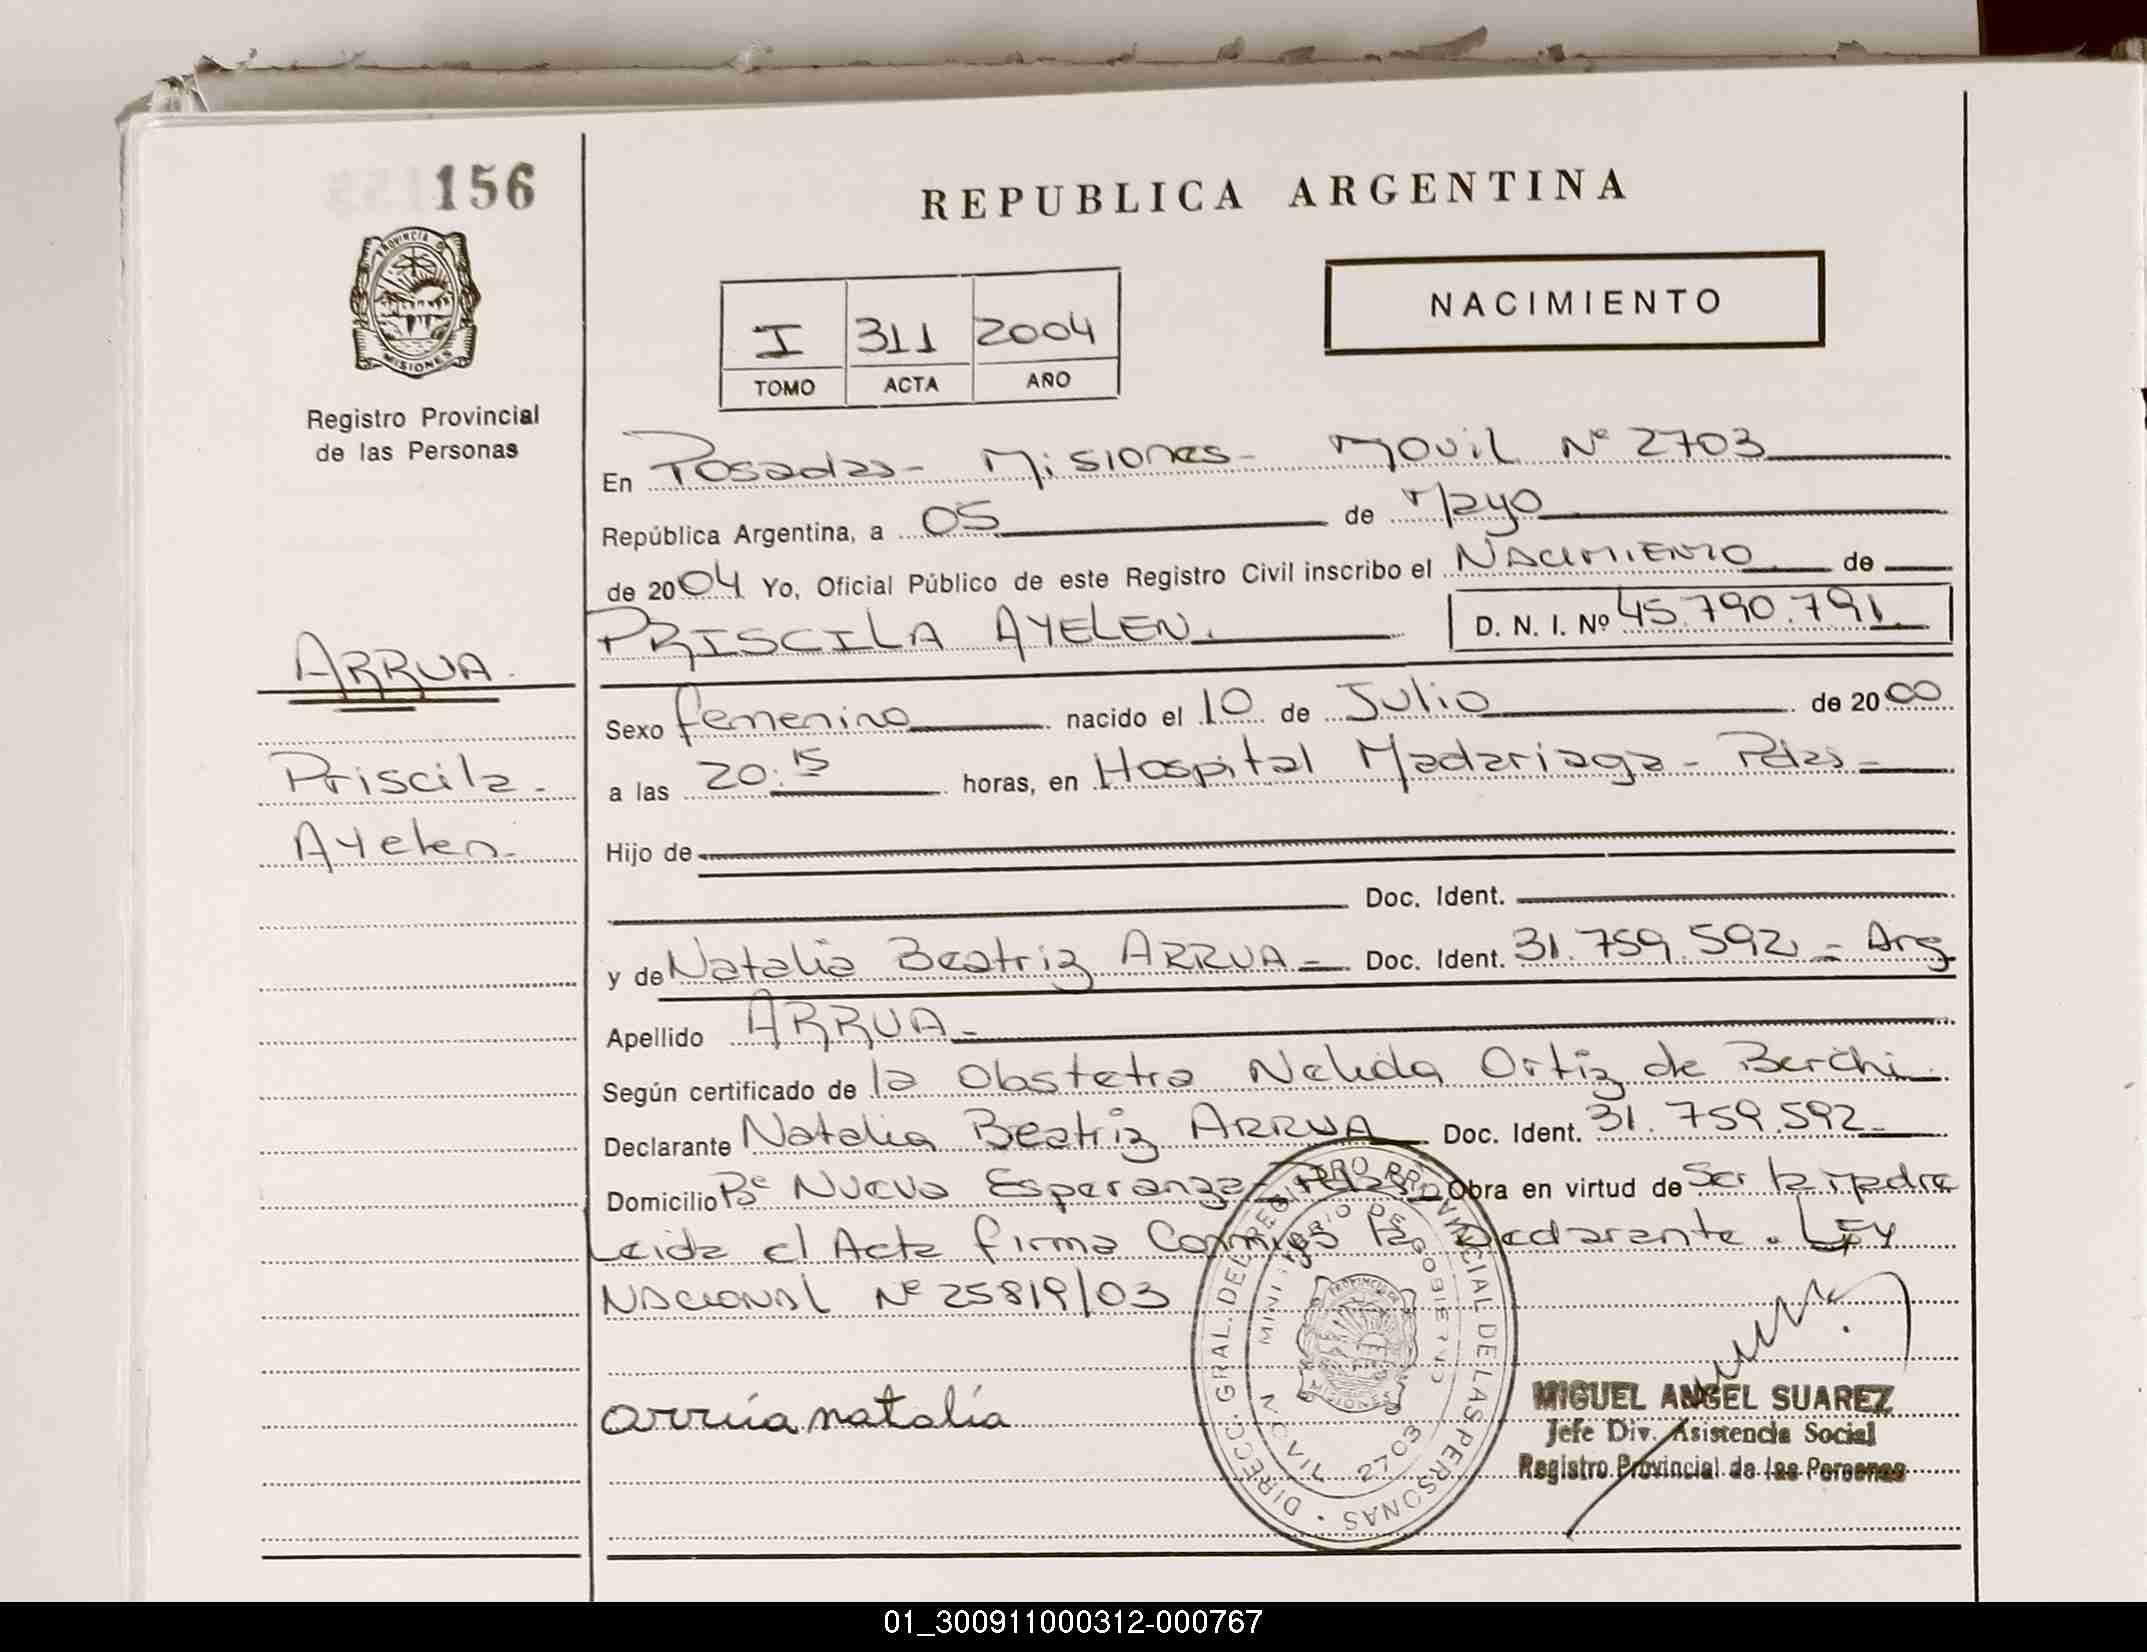 156
REPUBLICA ARGENTINA
PROVINCIA DE
MISIONES
Registro Provincial
de las Personas
NACIMIENTO
I 311 2004
TOMO ACTA AÑO
En Posadas - Misiones - Movil Nº 2703
República Argentina, a 05 de Mayo
de 2004 Yo, Oficial Público de este Registro Civil inscribo el NACIMIENTO de
PRISCILA AYELEN. D. N. I. Nº 45.790.791
ARRUA.
Priscila.
Ayelen.
Sexo femenino nacido el 10 de Julio de 2000
a las 20:15 horas, en Hospital Madariaga - Pdas -
Hijo de
Doc. Ident.
y de Natalia Beatriz ARRUA - Doc. Ident. 31.759.592 - Arg
Apellido ARRUA -
Según certificado de la Obstetra Nelida Ortiz de Berchi
Declarante Natalia Beatriz ARRUA Doc. Ident. 31.759.592 -
Domicilio Bº Nueva Esperanza - Pdas - Obra en virtud de Ser la madre
Leida el Acta firma Conmigo la Declarante. LEY
NACIONAL Nº 25819/03
arrúa natalía
DIRECC. GRAL. DEL REGISTRO PROVINCIAL DE LAS PERSONAS
MINISTERIO DE GOBIERNO
MOVIL 2703
MIGUEL ANGEL SUAREZ
Jefe Div. Asistencia Social
Registro Provincial de las Personas
01_300911000312-000767